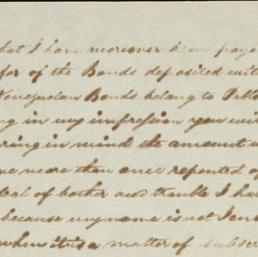 hat I have moreover been paye
for of the Bonds deposited with
Venezuelan Bonds belong to
ng in my impression you wi
ring in mind the amount
ne more than once repeated o
eal of bother and trouble I ha
because my name is not
when it is a matter of subscr